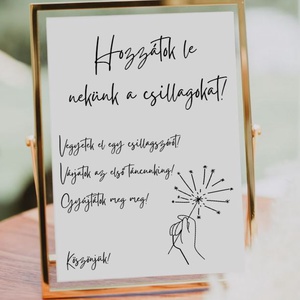 Hozzátok le
nekünk a csillagokat!
Vegyetek el egy csillagszórót!
Várjátok az első táncunking!
Gyújtátok meg meg!
Köszönjük!